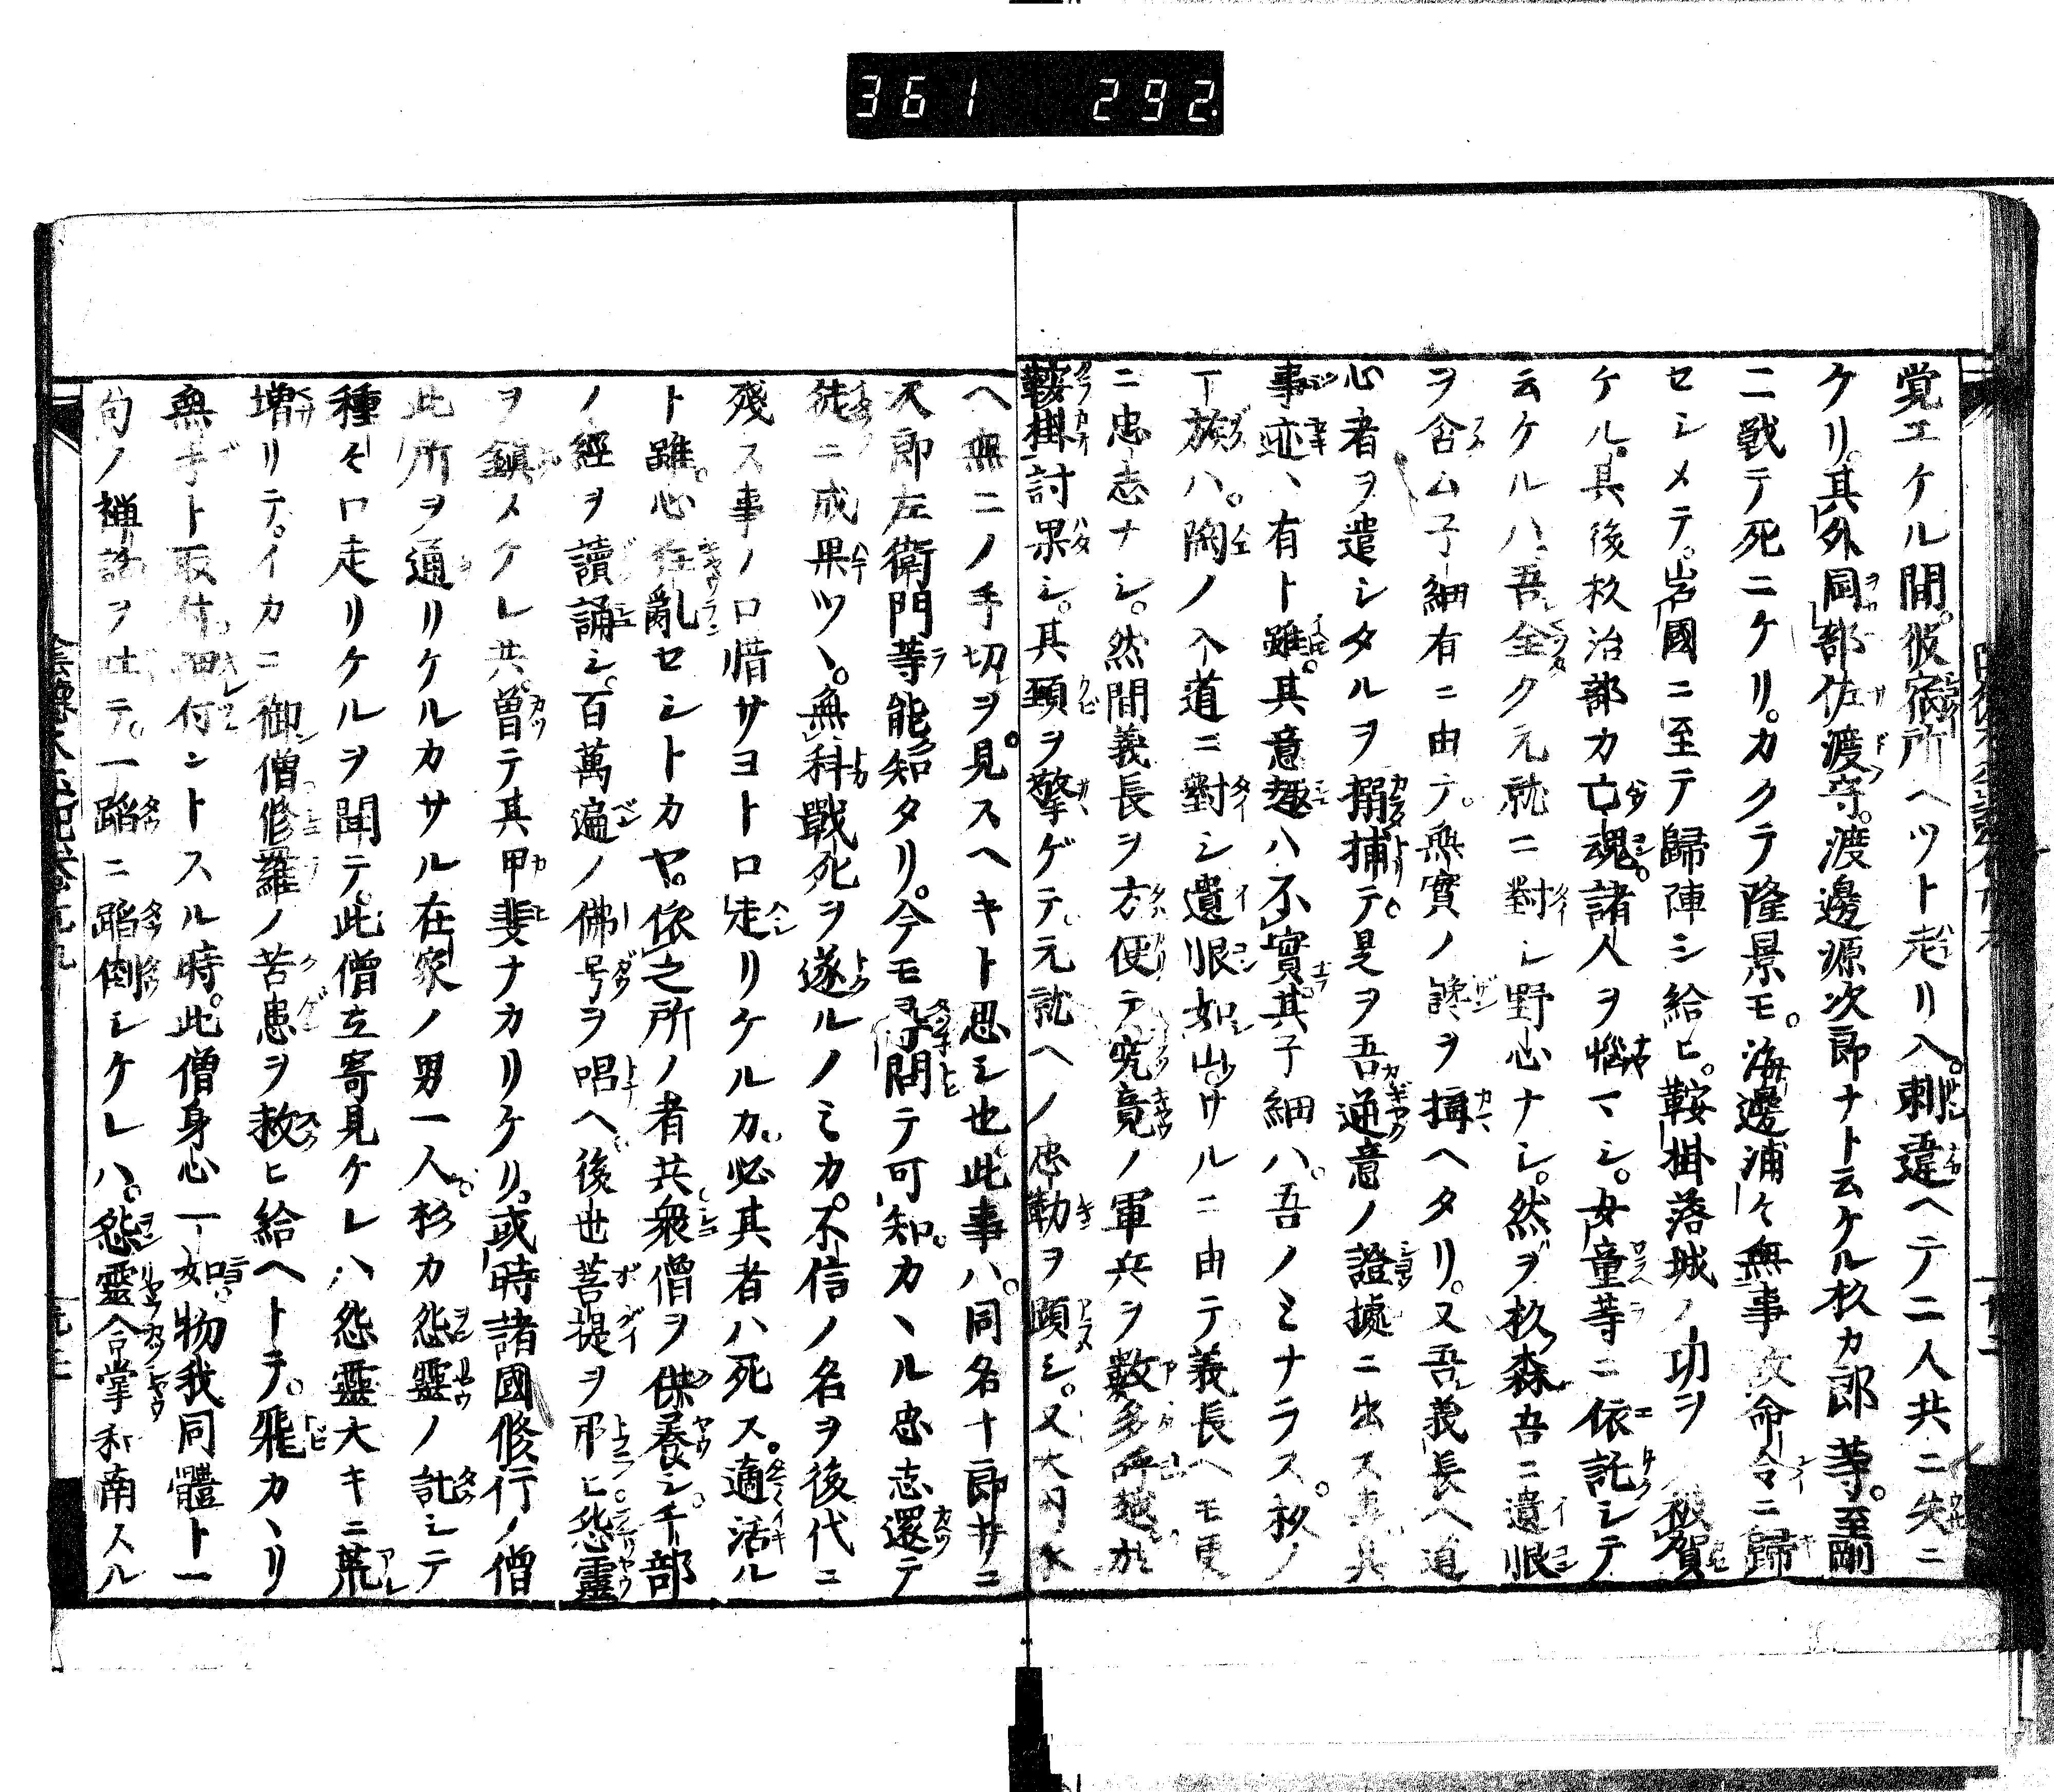 361 292
覚エケル間。彼宿所ヘツト走リ入。刺違ヘテ二人共ニ失ニ
ケリ。其外岡部佐渡守。渡邊源次郎ナト云ケル杦カ郎等。至剛
ニ戦テ死ニケリ。カクテ隆景モ。海邊浦々無事故命令ニ歸
セシメテ。岩國ニ至テ歸陣シ給ヒ。鞍掛落城ノ功ヲ被賀
ケル。其後杦治部カ亡魂。諸人ヲ惱マシ。女童等ニ依託シテ
云ケルハ。吾全ク元就ニ對シ野心ナシ。然ヲ杦森吾ニ遺恨
ヲ含ム子細有ニ由テ。無實ノ讒ヲ搆ヘタリ。又吾義長ヘ
心者ヲ遣シタルヲ搦捕テ。是ヲ吾通意ノ證據ニ出ス
事迹ハ有ト雖。其意趣ハ不實。其子細ハ。吾ノミナラス。杦ノ
一族ハ。陶ノ入道ニ對シ遺恨如山ナルニ由テ。義長ヘモ更
ニ忠志ナシ。然間義長ヲ方便テ究竟ノ軍兵ヲ數多呼越
鞍掛討果シ。其頚ヲ擎ゲテ。元就ヘノ忠勤ヲ顕シ。又大内
ヘ無二ノ手切ヲ。見スヘキト思シ也。此事ハ。同名十郎サニ
次郎左衛門等能知タリ。今モ尋問テ可知。カヽル忠志還テ
徒ニ成果ツヽ。無科戰死ヲ遂ルノミカ。不信ノ名ヲ後代ニ
殘ス事ノ口惜サヨトロ走リケルカ。必其者ハ死ス。適活ル
ト雖。心狂亂セシトカヤ。依之所ノ者共衆僧ヲ供養シ。千部
ノ經ヲ讀誦シ。百萬遍ノ佛号ヲ唱ヘ。後世菩提ヲ弔ヒ怨靈
ヲ鎮メケレ共。曽テ其甲斐ナカリケリ。或時諸國修行ノ僧
此所ヲ通リケルカサル在家ノ男一人。杉カ怨靈ノ託シテ
種々口走リケルヲ聞テ。此僧立寄見ケレハ怨靈大キニ荒
増リテ。イカニ御僧修羅ノ苦患ヲ救ヒ給ヘトテ。飛カヽリ
無手ト取付。喰付ントスル時。此僧身心一如。物我同體ト一
句ノ禅話ヲ吐テ。一蹈ニ蹈倒シケレハ。怨靈合掌和南スル